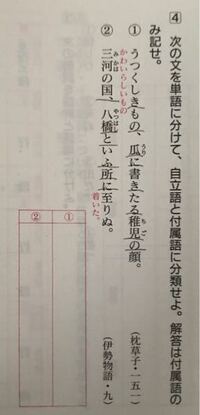 4 次の文を単語に分けて、自立語と付属語に分類せよ。解答は付属語の
み記せ。
① うつくしきもの、瓜に書きたる稚児の顔。
うり
ちご
(枕草子・一五一)
かわいらしいもの
② 三河の国、八橋といふ所に至りぬ。
みかは
やつはし
(伊勢物語・九)
着いた。
①
②